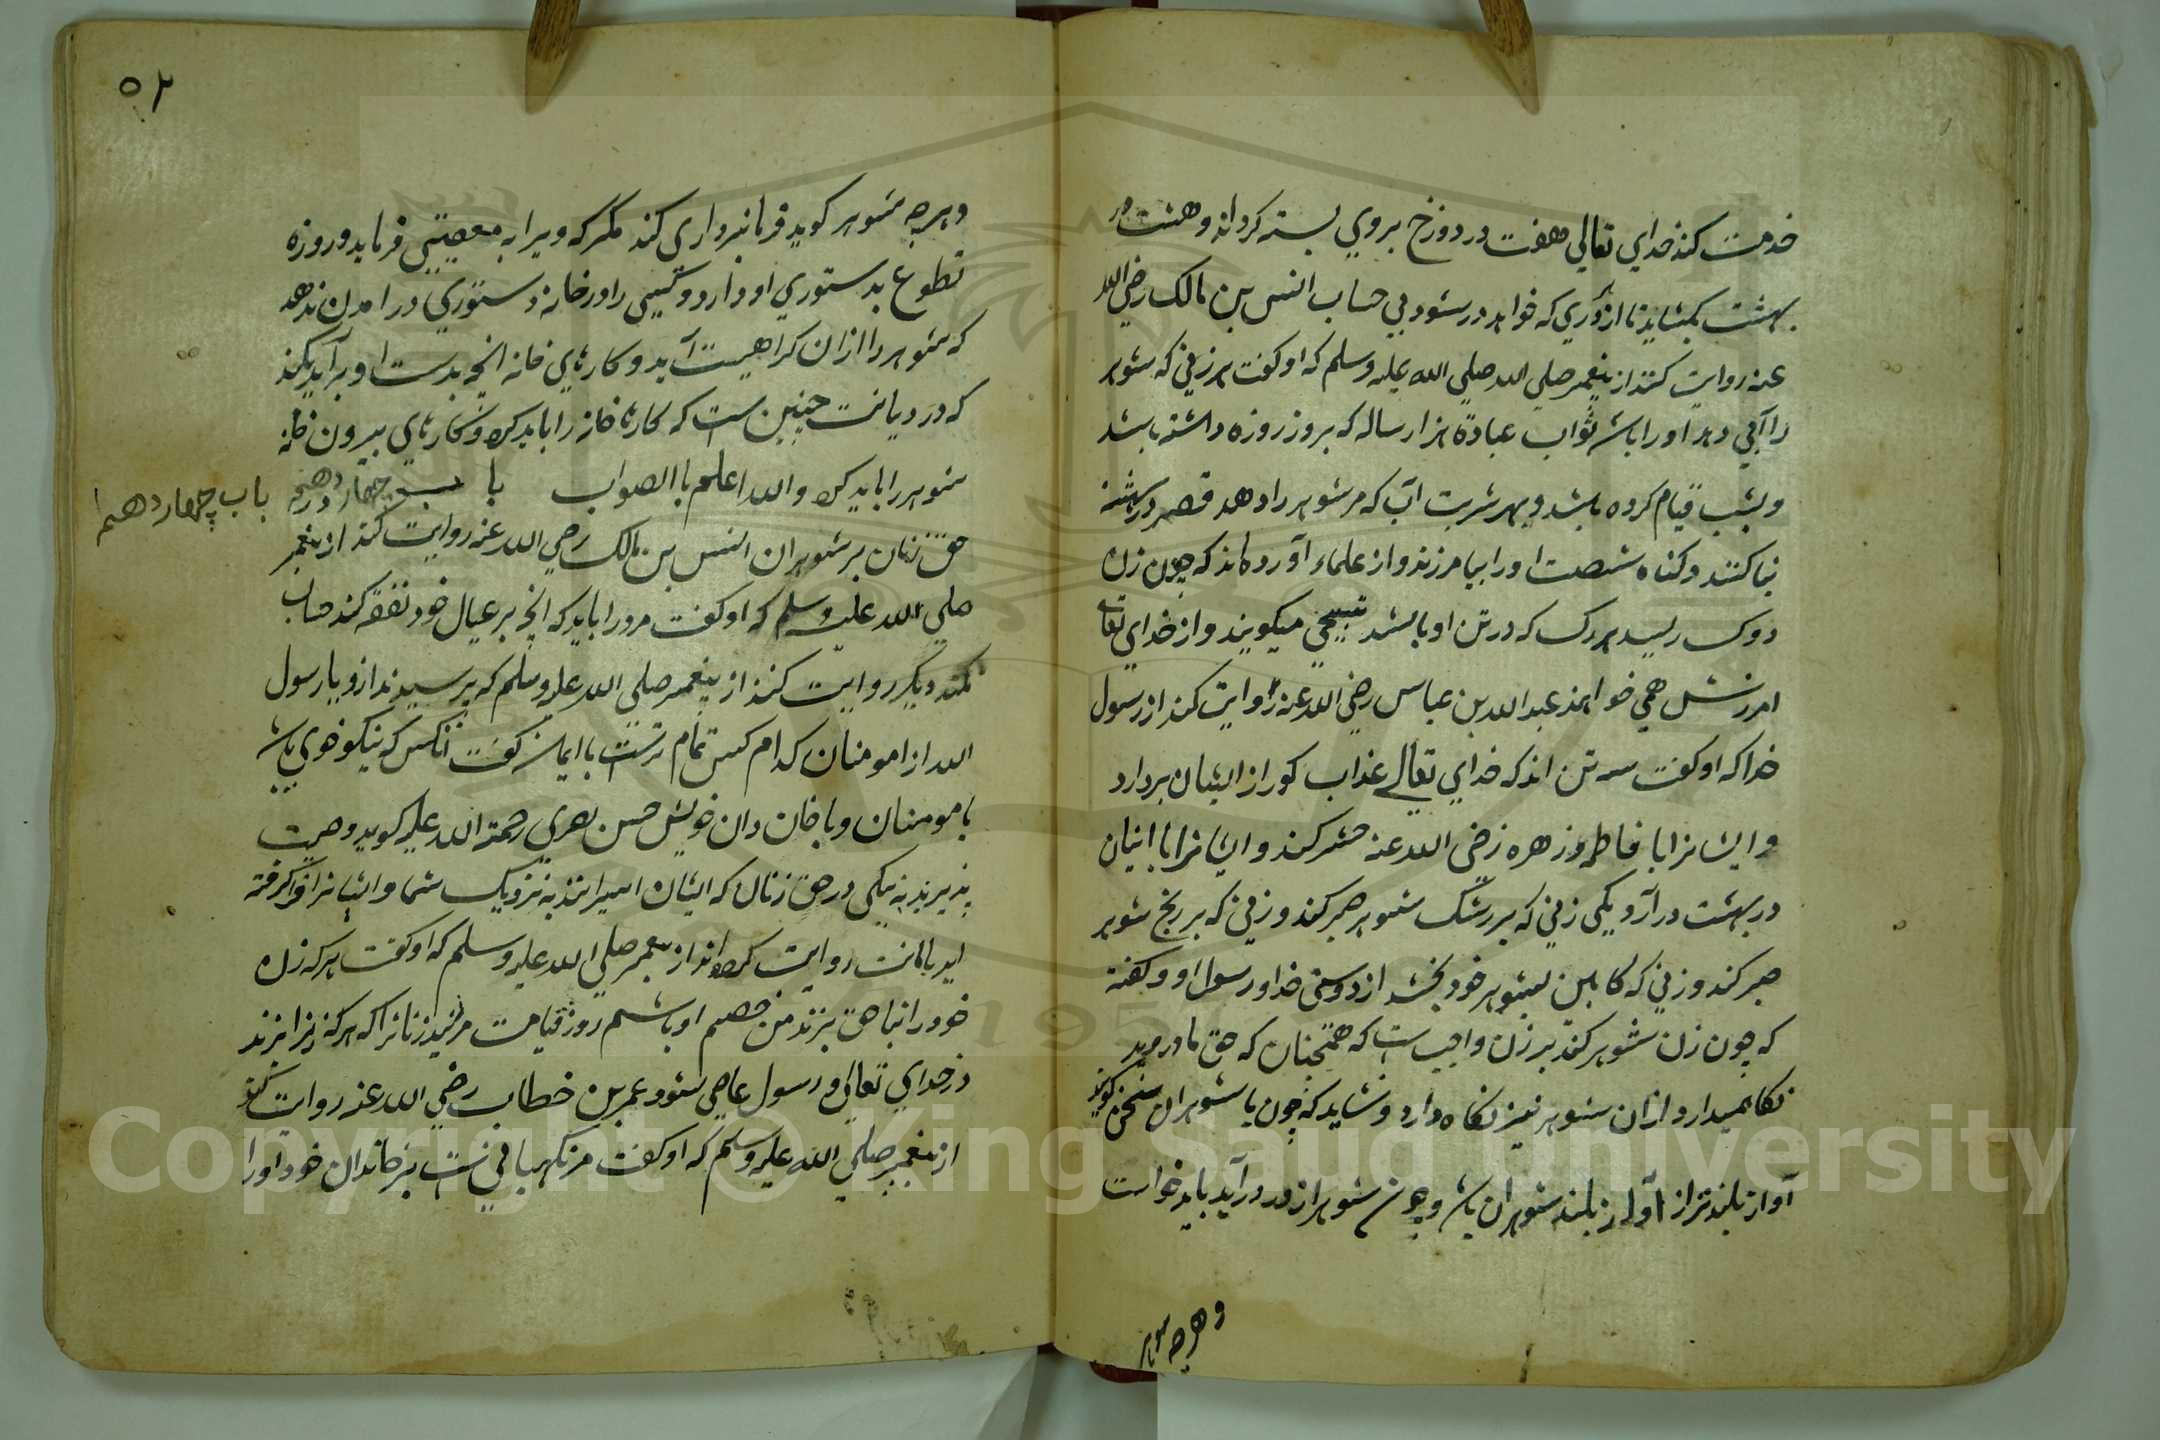 خدمت کند خدای تعالی هفت در دوزخ بروی بسته کرداند وهشت در
بهشت بکشاید تا از دری که خواهد در شود بی حساب انس بن مالک رضی الله
عنه روایت کند از پیغمبر صلی الله علیه وسلم که او کفت هر زنی که شوهر
را آبی دهد او را باشد ثواب عبادة هزار ساله که بروز روزه داشته باشد
وبشب قیام کرده باشد وبهر شربت آب که مر شوهر را دهد قصر در بهشت
بنا کنند وکناه شصت او را بیامرزند واز علماء آورده اند که چون زن
دوک ریسد هر رک که در تن او باشد تسبیح میکویند واز خدای تعالی
امرزش همی خواهند عبد الله بن عباس رضی الله عنه روایت کند از رسول
خدا که او کفت سه تن اند که خدای تعالی عذاب کور از ایشان بردارد
وایشانرا با فاطمه زهره رضی الله عنه حشر کند وایشانرا با اینان
در بهشت در آرد یکی زنی که بر رشک شوهر صبر کند وزنی که بر رنج شوهر
صبر کند وزنی که کابین بشوهر خود بخشد از دوستی خدا ورسول او وکفته
که چون زن شوهر کند بر زن واجبست که همچنان که حق مادر وپدر
نکاه میدارد از ان شوهر نیز نکاه دارد ونشاید که چون با شوهران سخن کویند
آواز بلندتر از آواز بلند شوهران باشد وچون شوهر از در در آید باید خواست
وهرچه شوهر
۵۲
وهرچه شوهر کوید فرمانبرداری کند مکر که ویرا به معصیتی فرماید وروزه
تطوع بدستوری او دارد وکسی را در خانه دستوری در امدن ندهد
که شوهر را از ان کراهیست آید وکارهای خانه انچه بدست او برآید بکند
که در دیانت چنین ست که کارها خانه را باید کرد وکارهای بیرون خانه
شوهر را باید کرد والله اعلم باالصواب باب چهاردهم در
باب چهاردهم
حق زنان بر شوهران انس بن مالک رضی الله عنه روایت کند از پیغمبر
صلی الله علیه وسلم که او کفت مرد را باید که انچه بر عیال خود نفقه کند حساب
نکند دیکر روایت کنند از پیغمبر صلی الله علیه وسلم که پرسیدند ازو یا رسول
الله از مومنان کدام کس تمام ترست با ایمان کفت آنکس که نیکو خوی باشد
با مومنان وبا خان دان خویش حسن بصری رحمة الله علیه کوید وصیت
پذیرند به نیکی در حق زنان که ایشان اسیرانند به نزدیک شما وایشانرا فرا کرفته
اید بامانت روایت کرده اند از پیغمبر صلی الله علیه وسلم که او کفت هر که زن
خود را نا بحق بزند من خصم او باشم روز قیامت مزنید زنانرا که هر که زنرا بزند
در خدای تعالی ورسول عاصی شود عمر بن خطاب رضی الله عنه روایت کند
از پیغمبر صلی الله علیه وسلم که او کفت مرد نکهبانی ست بر خاندان خود او را
Copyright © King Saud University